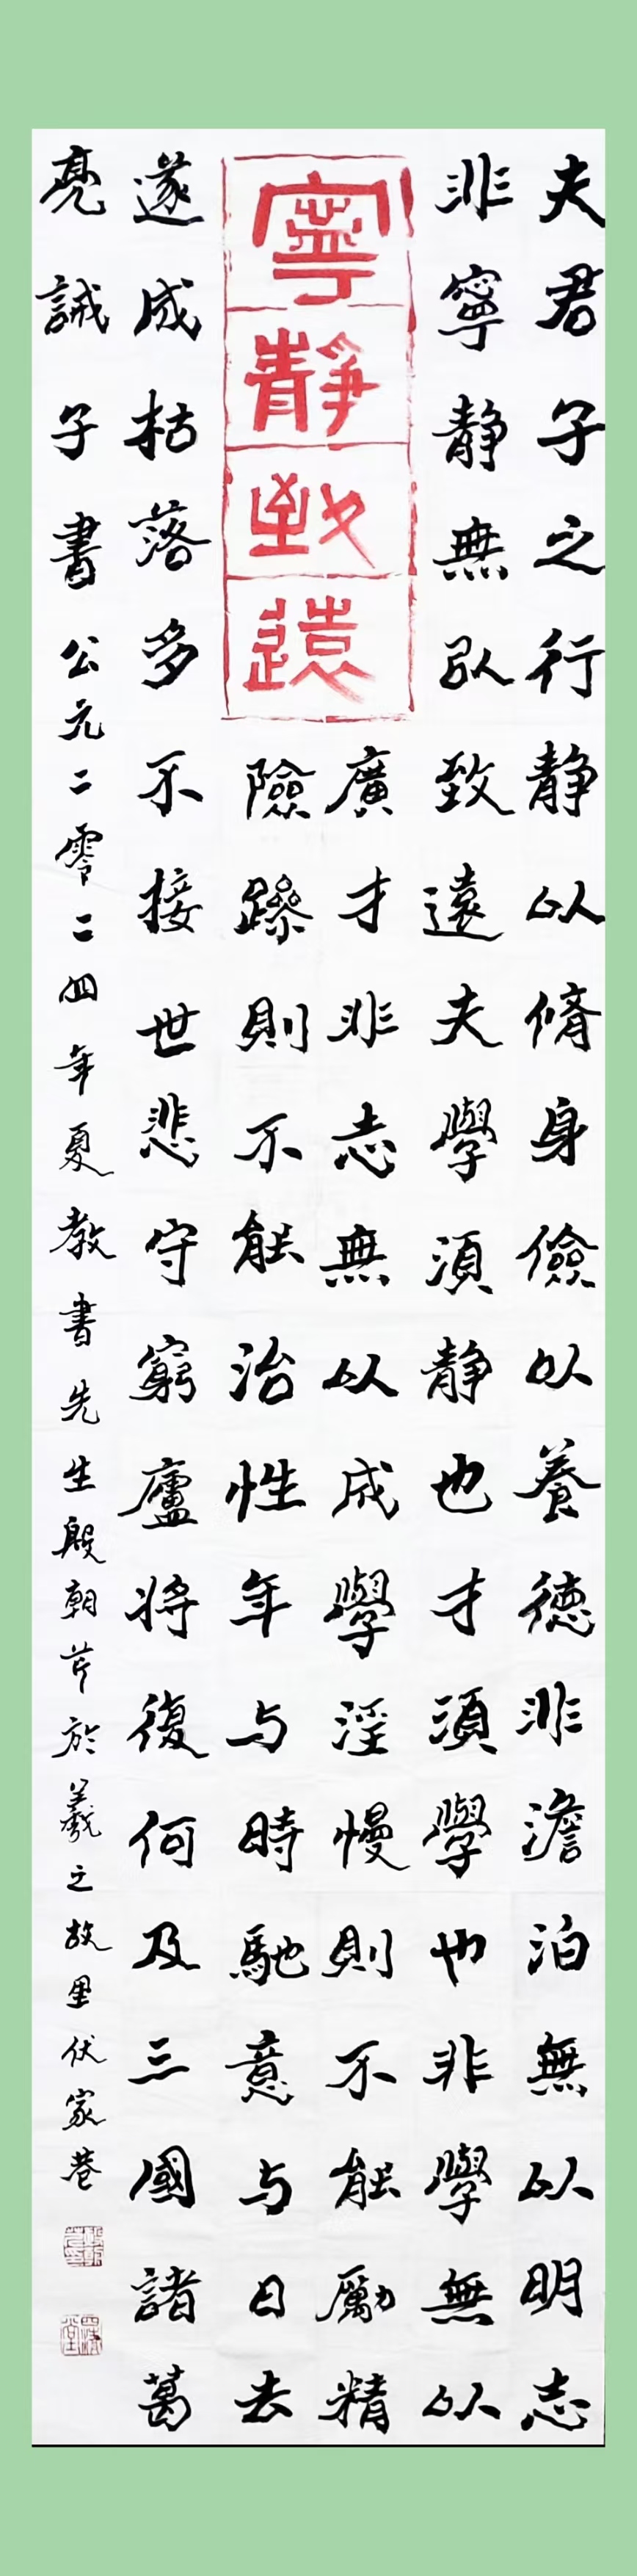 夫君子之行静以脩身儉以養德非澹泊無以明志
非寧静無以致遠夫學須静也才須學也非學無以
寧靜致遠
廣才非志無以成學淫慢則不能勵精
險躁則不能治性年与時馳意与日去
遂成枯落多不接世悲守窮廬將復何及三國諸葛
亮誡子書公元二零二四年夏教書先生殷朝芹於羲之故里伏家巷